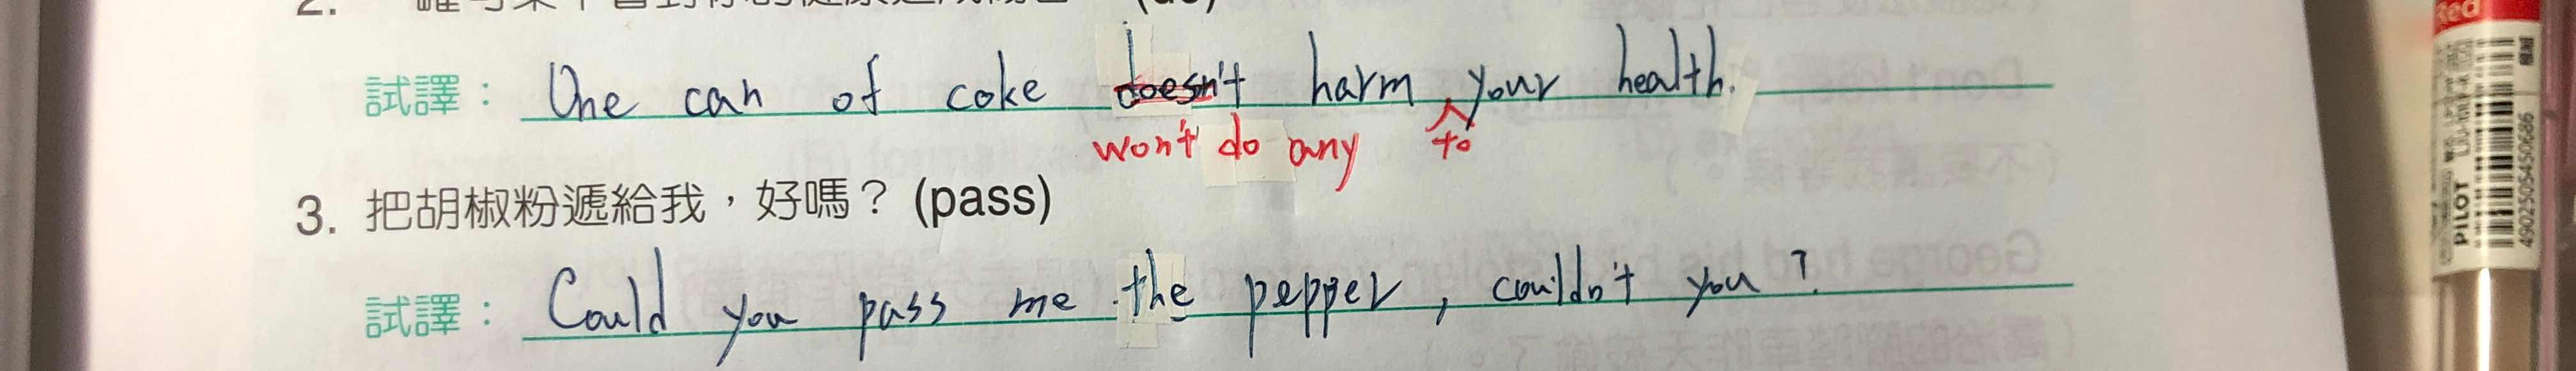 2. 一罐可樂不會對你的健康造成傷害。 (do)
試譯： One can of coke doesn't harm your health.
won't do any to
3. 把胡椒粉遞給我，好嗎？ (pass)
試譯： Could you pass me the pepper, couldn't you?
Red
PILOT
4902505450686